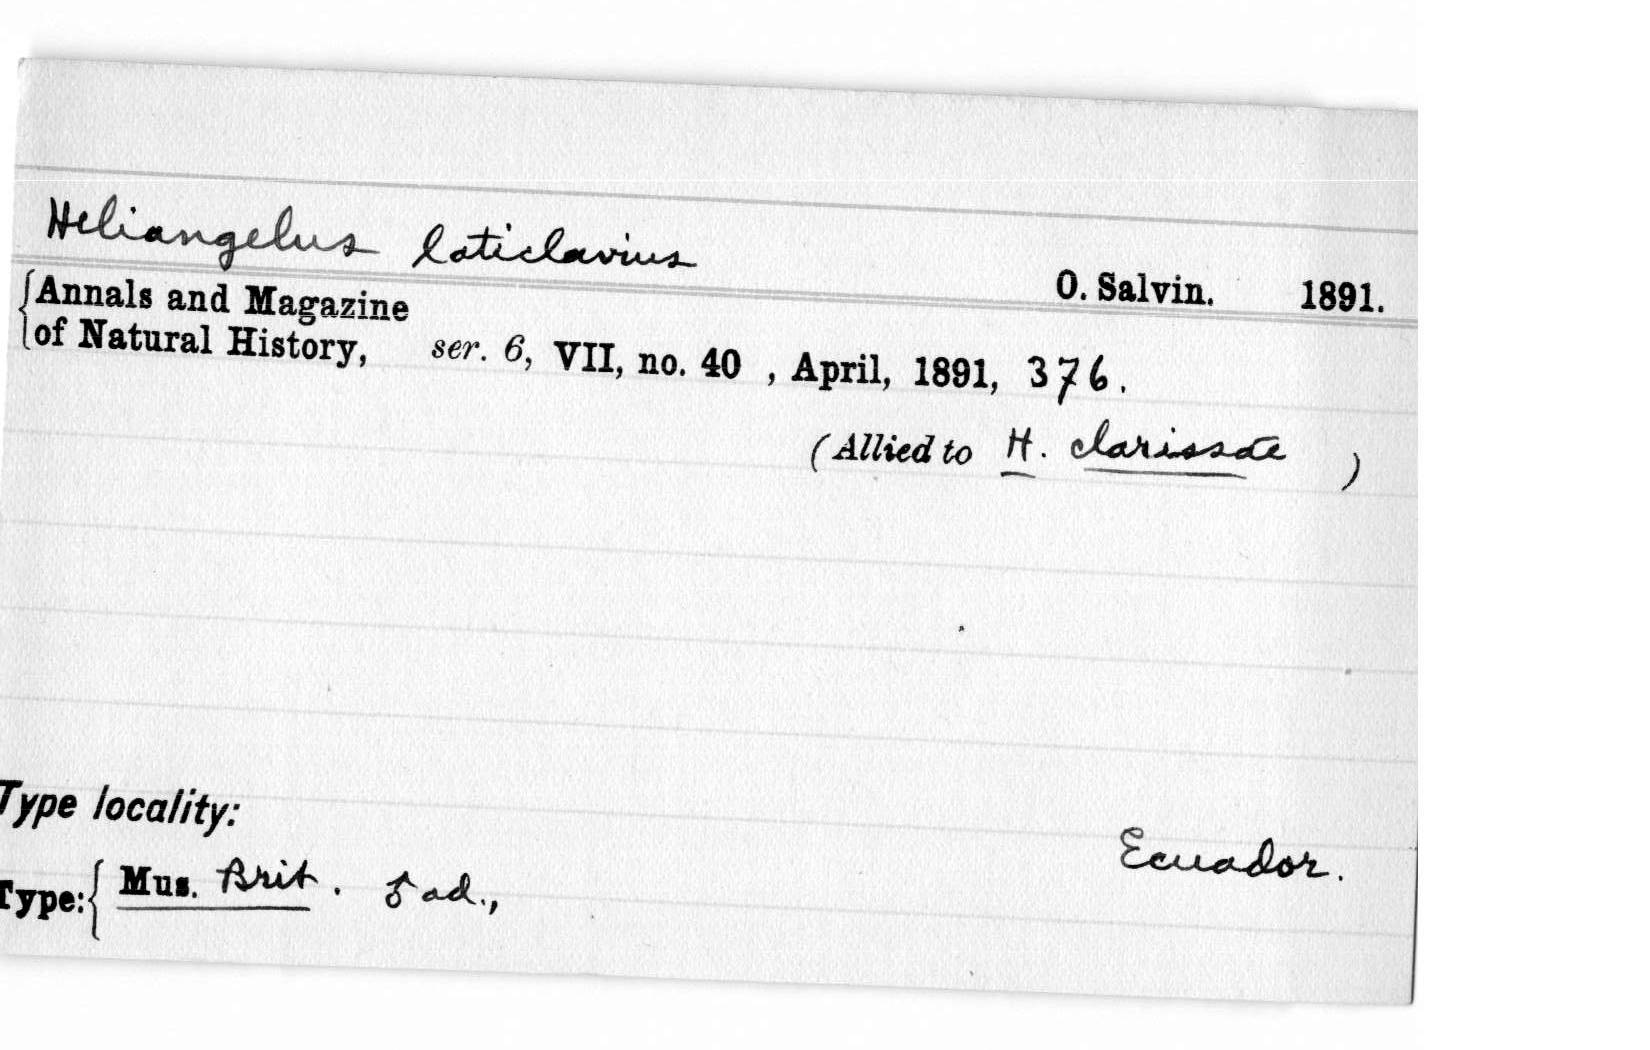 Heliangelus laticlavius
O. Salvin. 1891.
{Annals and Magazine
of Natural History, ser. 6, VII, no. 40 , April, 1891, 376.
(Allied to H. clarissae )
Type locality:
Ecuador.
Type: { Mus. Brit. ♂ ad.,